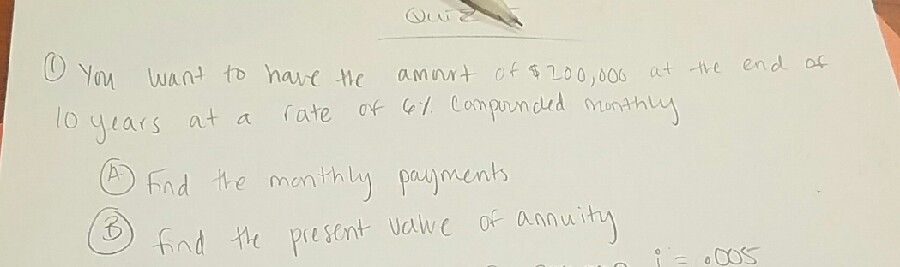 Quiz
① You want to have the amount of $200,000 at the end of
10 years at a rate of 6% Compounded monthly
Ⓐ Find the monthly payments
Ⓑ find the present value of annuity
i = .005